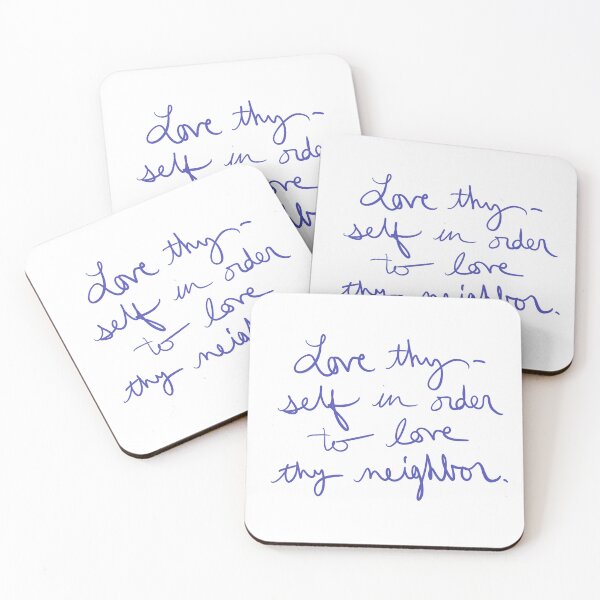 Love thy-
self in
Love thy-
self in order
to love
thy neighbor.
Love thy-
self in order
to love
thy
Love thy-
self in order
to love
thy neighbor.